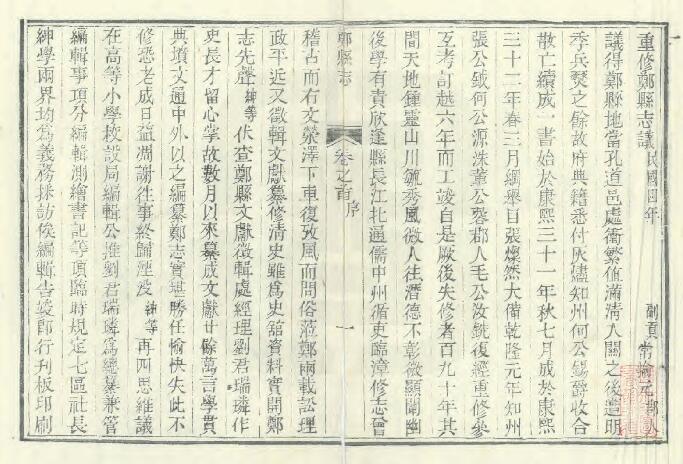 重修鄭縣志議民國四年 副貢常瑜元
議得鄭縣地當孔道邑處衝繁值滿清入關之後遭明
季兵燹之餘故府典籍悉付灰燼知州何公錫爵收合
散亡續成一書始於康熙三十一年秋七月成於康熙
三十二年春三月綱舉目張燦然大備乾隆元年知州
張公鉞何公源洙董公榕郡人毛公汝銑復經重修參
互考訂越六年而工竣自是厥後失修者百九十年其
間天地鍾靈山川毓秀風微人往潛德不彰微顯闡幽
後學有責欣逢縣長江北通儒中州循吏臨漳修志會
鄭縣志 卷之首 序 一
稽古而右文滎澤下車復攷風而問俗蒞鄭兩載訟理
政平近又徵輯文獻纂修清史雖為史舘資料實開鄭
志先聲紳等伏查鄭縣文獻徵輯處經理劉君瑞璘作
史長才留心掌故數月以來纂成文獻廿餘萬言學貫
典墳文通中外以之編纂鄭志實堪勝任愉快失此不
修恐老成日益凋謝往事終歸湮沒紳等再四思維議
在高等小學校設局編輯公推劉君瑞璘為總纂兼管
編輯事項分編輯測繪書記等項臨時規定七區社長
紳學兩界均為義務採訪俟編輯告竣即行刋板印刷